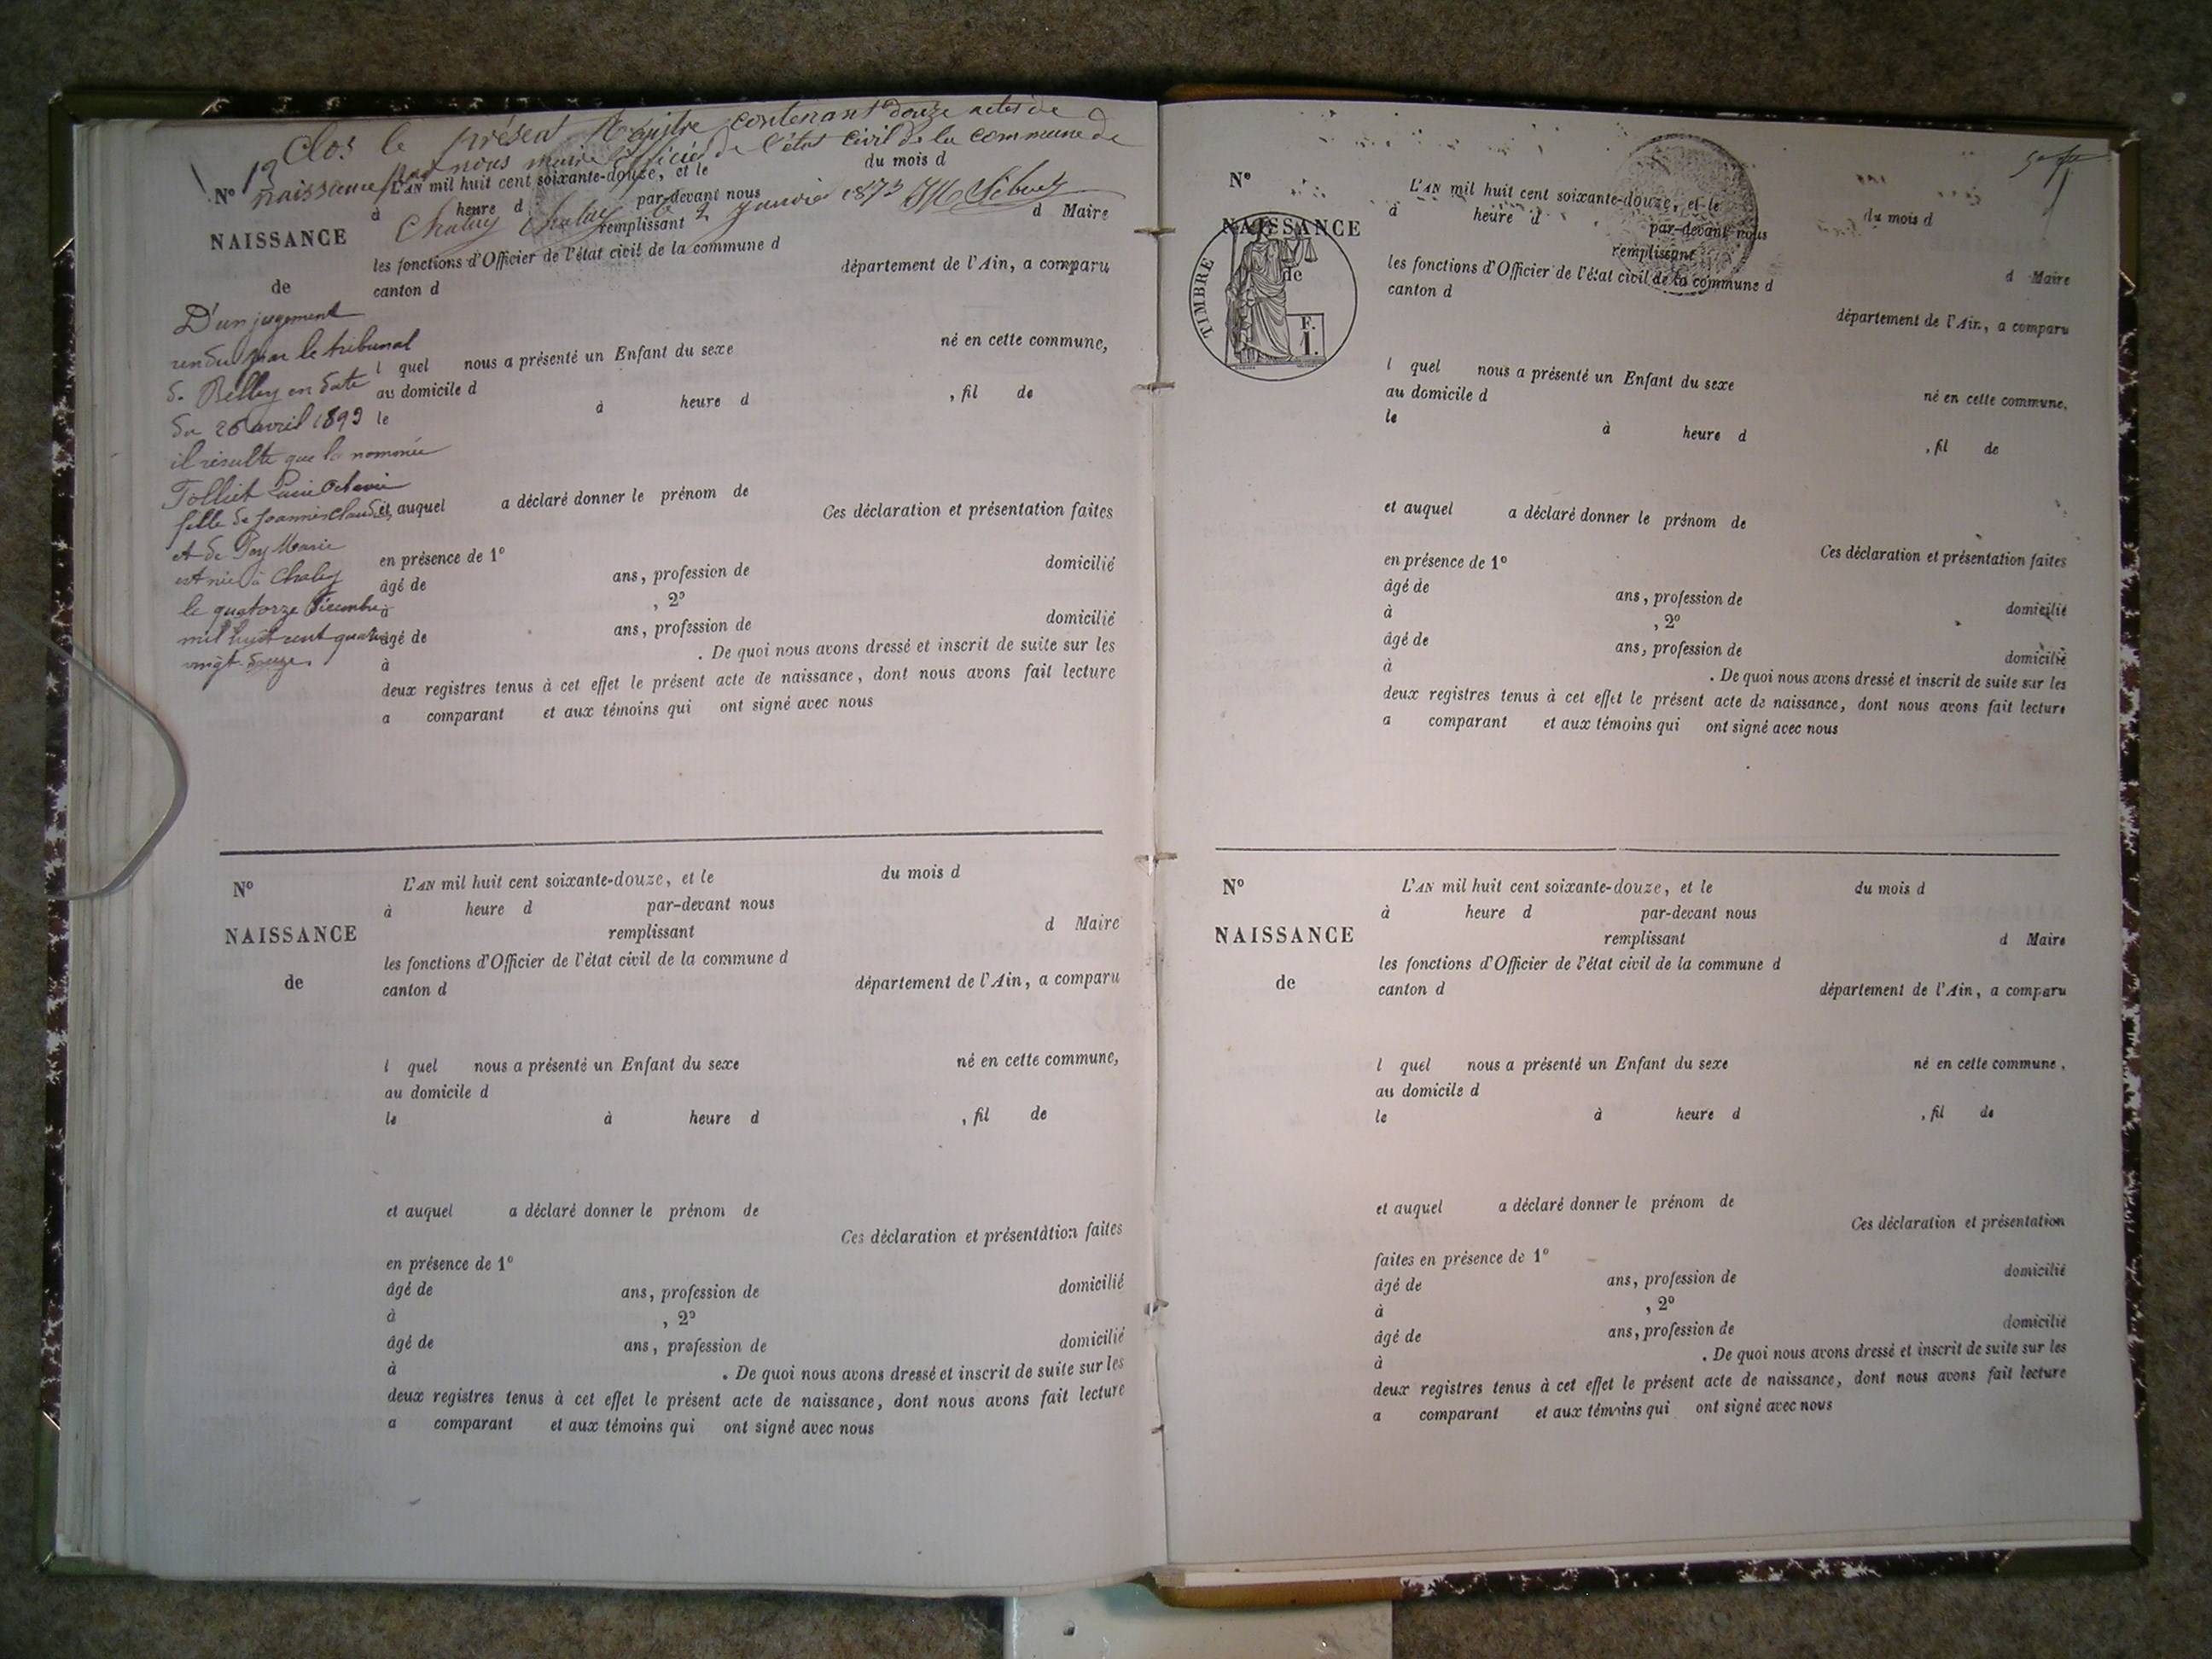 Clos le présent Registre contenant douze actes de
naissance par nous maire officier de l'état civil de la commune de
Chaley Chaley le 2 janvier 1873
N° 13
L'AN mil huit cent soixante-douze, et le du mois d
à heure d par-devant nous
remplissant d Maire
NAISSANCE
les fonctions d'Officier de l'état civil de la commune d
de
canton d département de l'Ain, a comparu
D'un jugement
rendu par le tribunal
de Belley en date
du 26 avril 1893
il résulte que la nommée
Tolliet Octavie
fille de Joannès Claude
et de Poy Marie
est née à Chaley
le quatorze Décembre
mil huit cent quatre
vingt douze
l quel nous a présenté un Enfant du sexe né en cette commune,
au domicile d
le à heure d , fil de
et auquel a déclaré donner le prénom de
Ces déclaration et présentation faites
en présence de 1°
âgé de ans, profession de domicilié
à , 2°
âgé de ans, profession de domicilié
à . De quoi nous avons dressé et inscrit de suite sur les
deux registres tenus à cet effet le présent acte de naissance, dont nous avons fait lecture
a comparant et aux témoins qui ont signé avec nous
N°
L'AN mil huit cent soixante-douze, et le du mois d
à heure d par-devant nous
NAISSANCE
remplissant d Maire
les fonctions d'Officier de l'état civil de la commune d
de
canton d département de l'Ain, a comparu
l quel nous a présenté un Enfant du sexe né en cette commune,
au domicile d
le à heure d , fil de
et auquel a déclaré donner le prénom de
Ces déclaration et présentation faites
en présence de 1°
âgé de ans, profession de domicilié
à , 2°
âgé de ans, profession de domicilié
à . De quoi nous avons dressé et inscrit de suite sur les
deux registres tenus à cet effet le présent acte de naissance, dont nous avons fait lecture
a comparant et aux témoins qui ont signé avec nous
N°
L'AN mil huit cent soixante-douze, et le du mois d
à heure d par-devant nous
NAISSANCE
remplissant d Maire
de
TIMBRE
F.
I.
les fonctions d'Officier de l'état civil de la commune d
canton d département de l'Ain, a comparu
l quel nous a présenté un Enfant du sexe né en cette commune,
au domicile d
le à heure d , fil de
et auquel a déclaré donner le prénom de
Ces déclaration et présentation faites
en présence de 1°
âgé de ans, profession de domicilié
à , 2°
âgé de ans, profession de domicilié
à . De quoi nous avons dressé et inscrit de suite sur les
deux registres tenus à cet effet le présent acte de naissance, dont nous avons fait lecture
a comparant et aux témoins qui ont signé avec nous
N°
L'AN mil huit cent soixante-douze, et le du mois d
à heure d par-devant nous
NAISSANCE
remplissant d Maire
les fonctions d'Officier de l'état civil de la commune d
de
canton d département de l'Ain, a comparu
l quel nous a présenté un Enfant du sexe né en cette commune,
au domicile d
le à heure d , fil de
et auquel a déclaré donner le prénom de
Ces déclaration et présentation
faites en présence de 1°
âgé de ans, profession de domicilié
à , 2°
âgé de ans, profession de domicilié
à . De quoi nous avons dressé et inscrit de suite sur les
deux registres tenus à cet effet le présent acte de naissance, dont nous avons fait lecture
a comparant et aux témoins qui ont signé avec nous